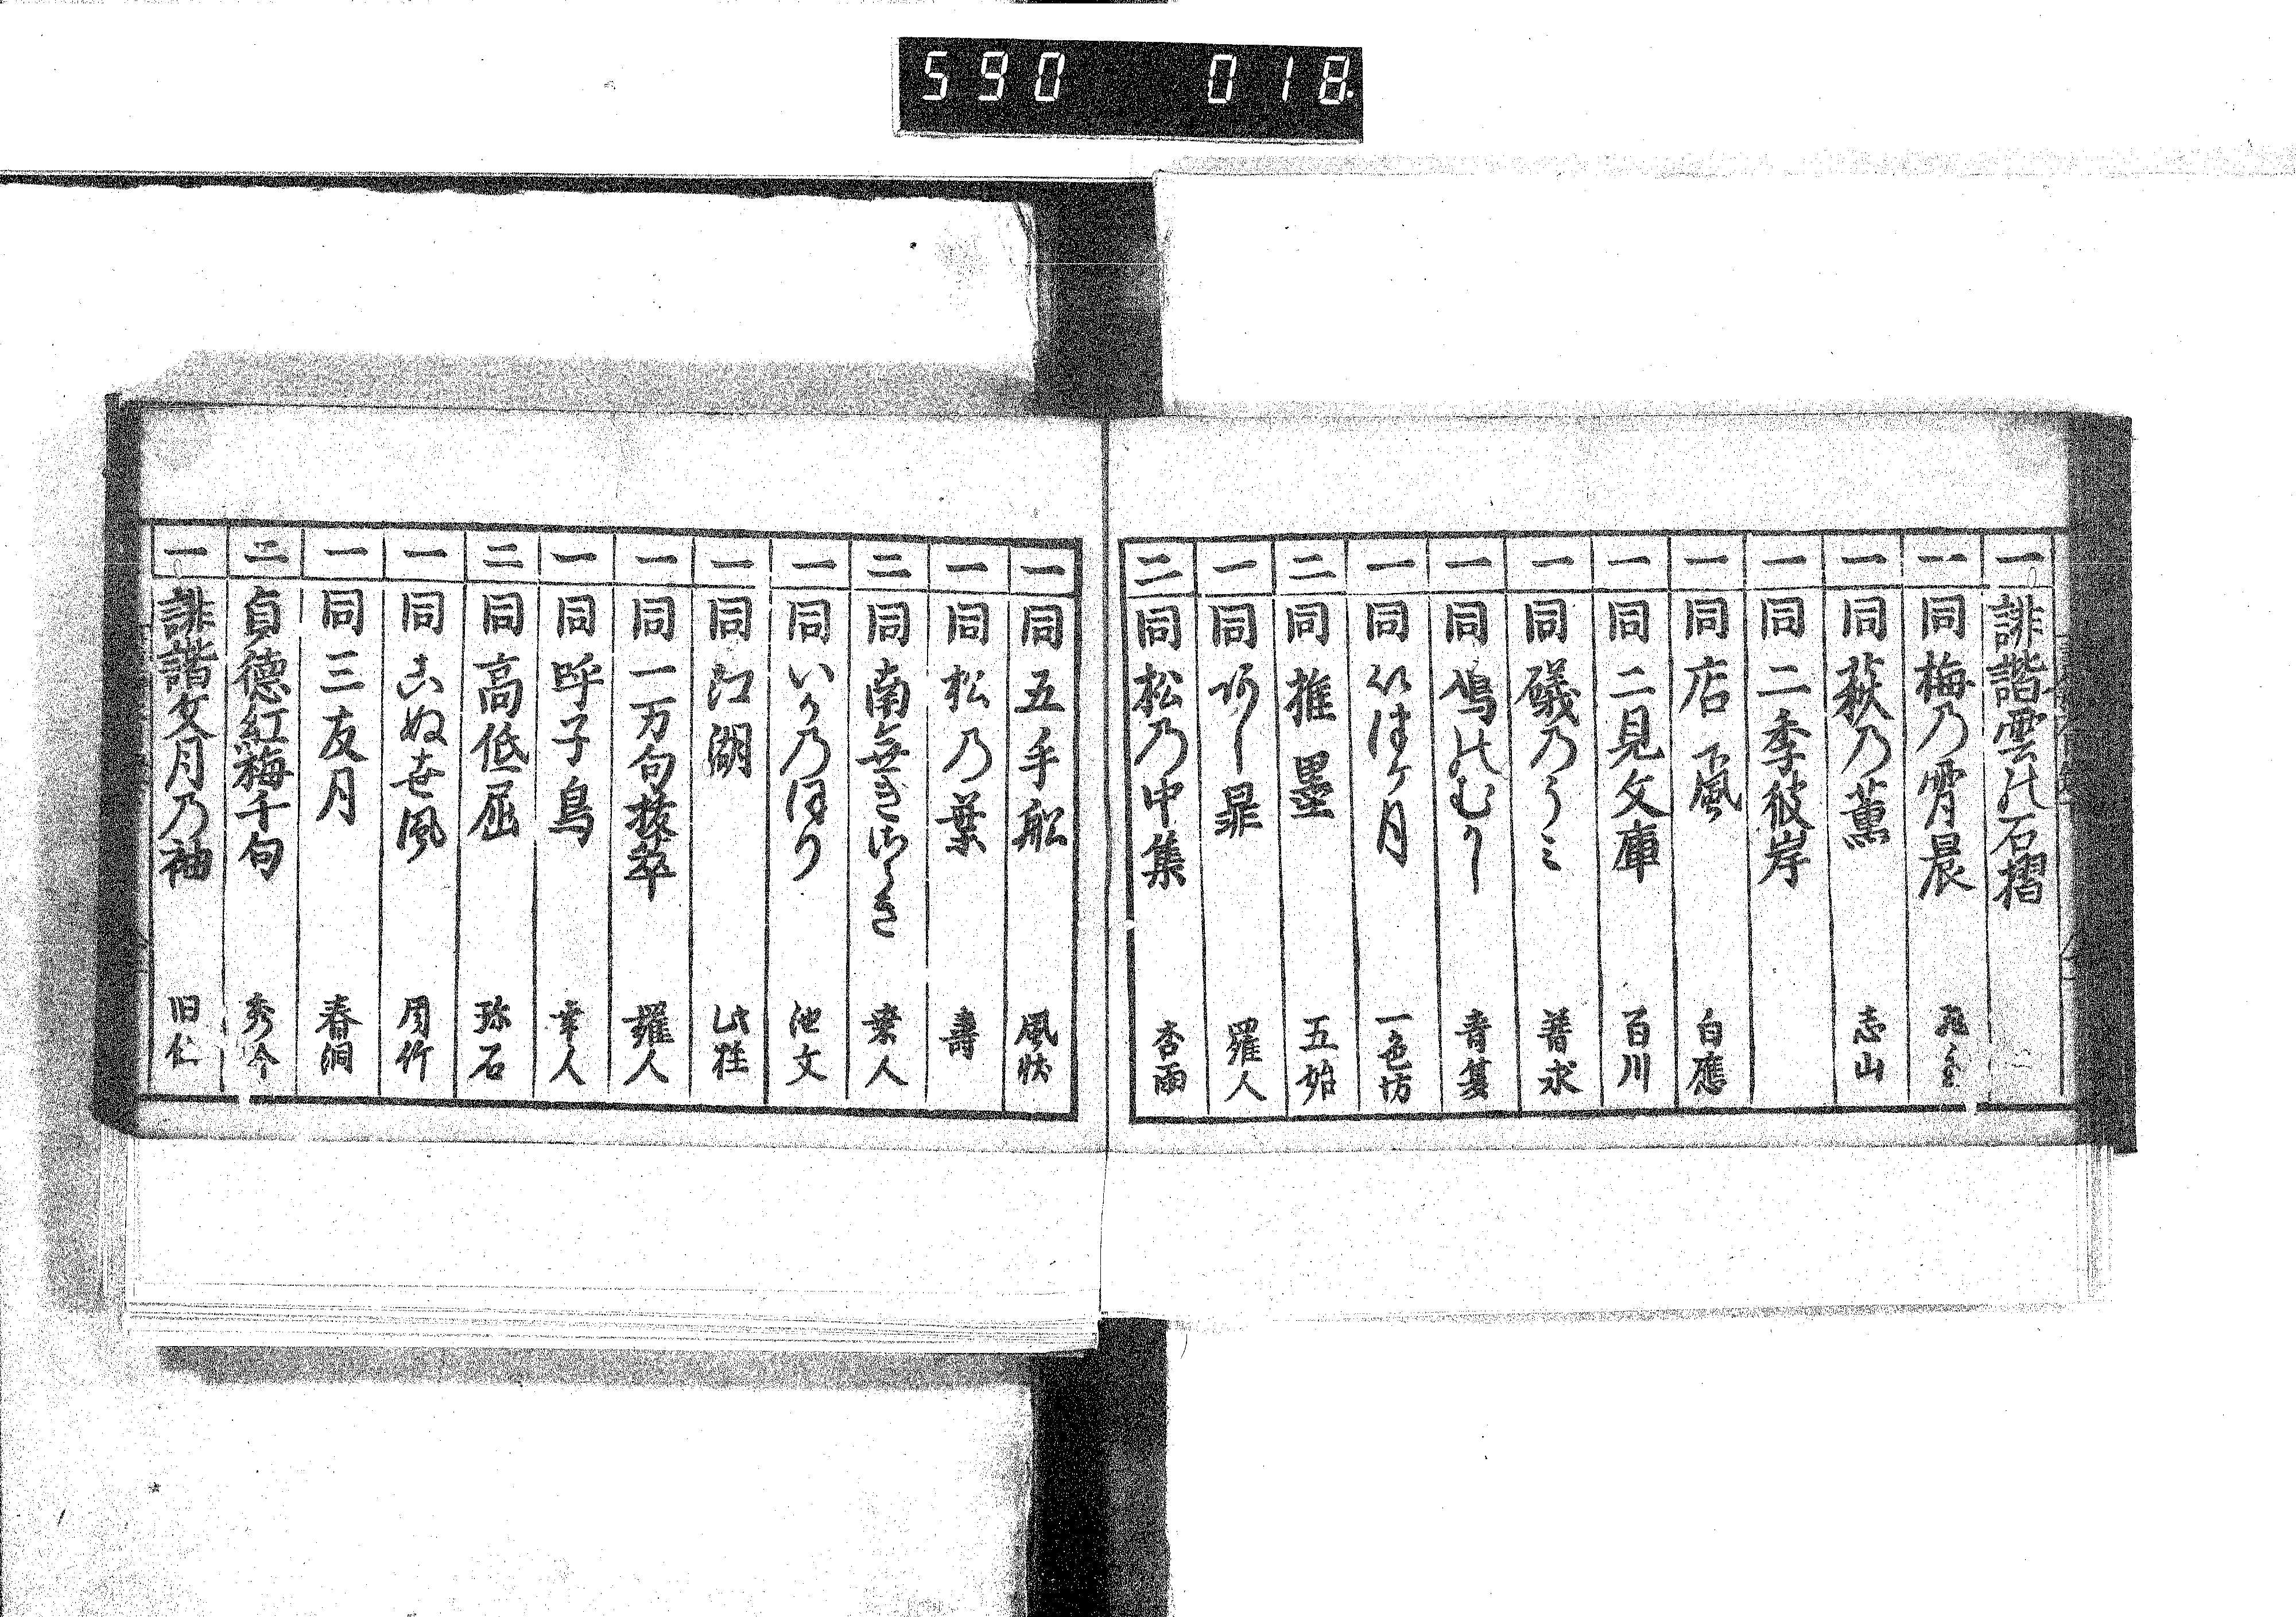 590 018
一 誹諧雲の石摺
一 同 梅乃宵晨
一 同 萩乃薫 志山
一 同 二季彼岸
一 同 店風 白應
一 同 二見文庫 百川
一 同 礒乃うミ 普求
一 同 鳩のむかし 青
一 同 以津ヶ月 一色坊
二 同 推墨 五始
一 同 羅人
二 同 松乃中集 杏雨
一 同 五手舩 風状
一 同 松乃葉 壽
二 同 南無きさらき 乗人
一 同 いか乃ほり 池文
一 同 江湖
一 同 一万句抜萃 羅人
一 同 呼子鳥 幸人
二 同 高低屈 珎石
一 同 こぬ世風 周竹
一 同 三友月 春洞
二 貞德紅梅千句 秀令
一 誹諧文月乃袖 旧仁